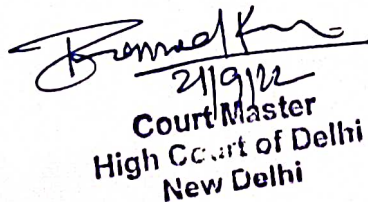 21/9/22
Court Master
High Court of Delhi
New Delhi